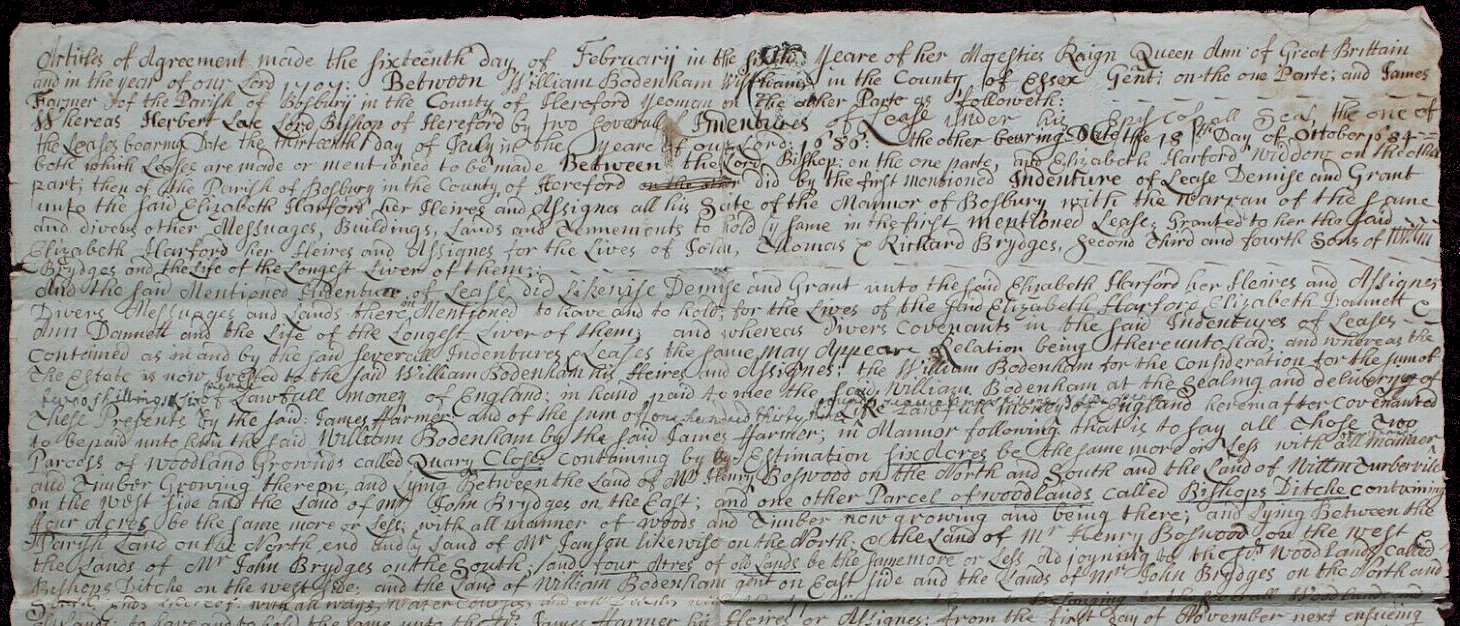 Articles of Agreement made the sixteenth day of Februarij in the sixth Yeare of her Majesties Raign Queen Ann: of Great Brittain
and in the year of our Lord 1707: Between William Bodenham in the County of Essex Gent; on the one Parte; and James
Farmer of the Parish of Bosbury in the County of Hereford Yeoman on the other Parte as followeth:
Whereas Herbert Late Lord Bishop of Hereford by two severall Indentures of Lease under his Episcopall Seal, the one of
the Leases bearing Date the thirteenth day of July in the yeare of our Lord: the other bearing Date the 18th Day of October 1684
both which Leases are made or mentioned to be made Between the Lord Bishop; on the one parte, and Elizabeth Harford Widdow on the other
part; then of the Parish of Bosbury in the County of Hereford did by the first mentioned Indenture of Lease Demise and Grant
unto the said Elizabeth Harford her Heires and Assignes all his Scite of the Mannor of Bosbury with the Warran of the same
and divers other Messuages, Buildings, Lands and Tennements to hold the same in the first mentioned Lease; Granted to her the said
Elizabeth Harford her Heires and Assignes for the Lives of John, Thomas & Richard Brydges, Second Third and fourth Sons of Willm
Brydges and the Life of the Longest Liver of them;
And the said Mentioned Indenture of Lease did Likewise Demise and Grant unto the said Elizabeth Harford her Heires and Assignes
Divers Messuages and Lands there in Mentioned to have and to hold; for the Lives of the said Elizabeth Harford Elizabeth Dannett &
Ann Dannett and the Life of the Longest Liver of them; and whereas Divers Covenants in the said Indentures of Leases
Contained as in and by the said severall Indentures Leases the same may Appeare Relation being thereunto had; and whereas the
The Estate is now Vested to the said William Bodenham his Heires and Assignes; the William Bodenham for the Consideration for the sum of
of Lawfull money of England; in hand paid to mee the said William Bodenham at the Sealing and delivery of
These Presents by the said: James Farmer and of the sum of Like Lawfull money of England hereinafter Covenanted
to be paid unto him the said William Bodenham by the said James Farmer; in Mannor following that is to say all Those Two
Parcess of Woodland Grownds called Quary Closes containing by Estimation six acres be the same more or Less with all manner
and Timber Growing thereon, and Lying Between the Land of Mr Henry Boswood on the North and South and the Land of Willm Turbervile
on the west side and the Land of Mr John Brydges on the East; and one other Parcel of woodlands called Bishops Ditche containing
four acres be the same more or Less; with all manner of woods and Timber now growing and being there; and Lying Between the
Parish Land on the North end and Land of Mr Janson likewise on the North; & the Land of Mr Henry Boswood on the West
the Lands of Mr John Brydges on the South; and four Acres of old Lands be the same more or Less Adjoyning to the sd Wood Lands called
Bishops Ditche on the west side; and the Land of William Bodenham gent on East side and the Lands of Mr John Brydges on the North and
with all ways, Water Courses and all belonging to the
to have and to hold the same unto the sd James Farmer his Heires or Assignes; from the first day of November next ensueing